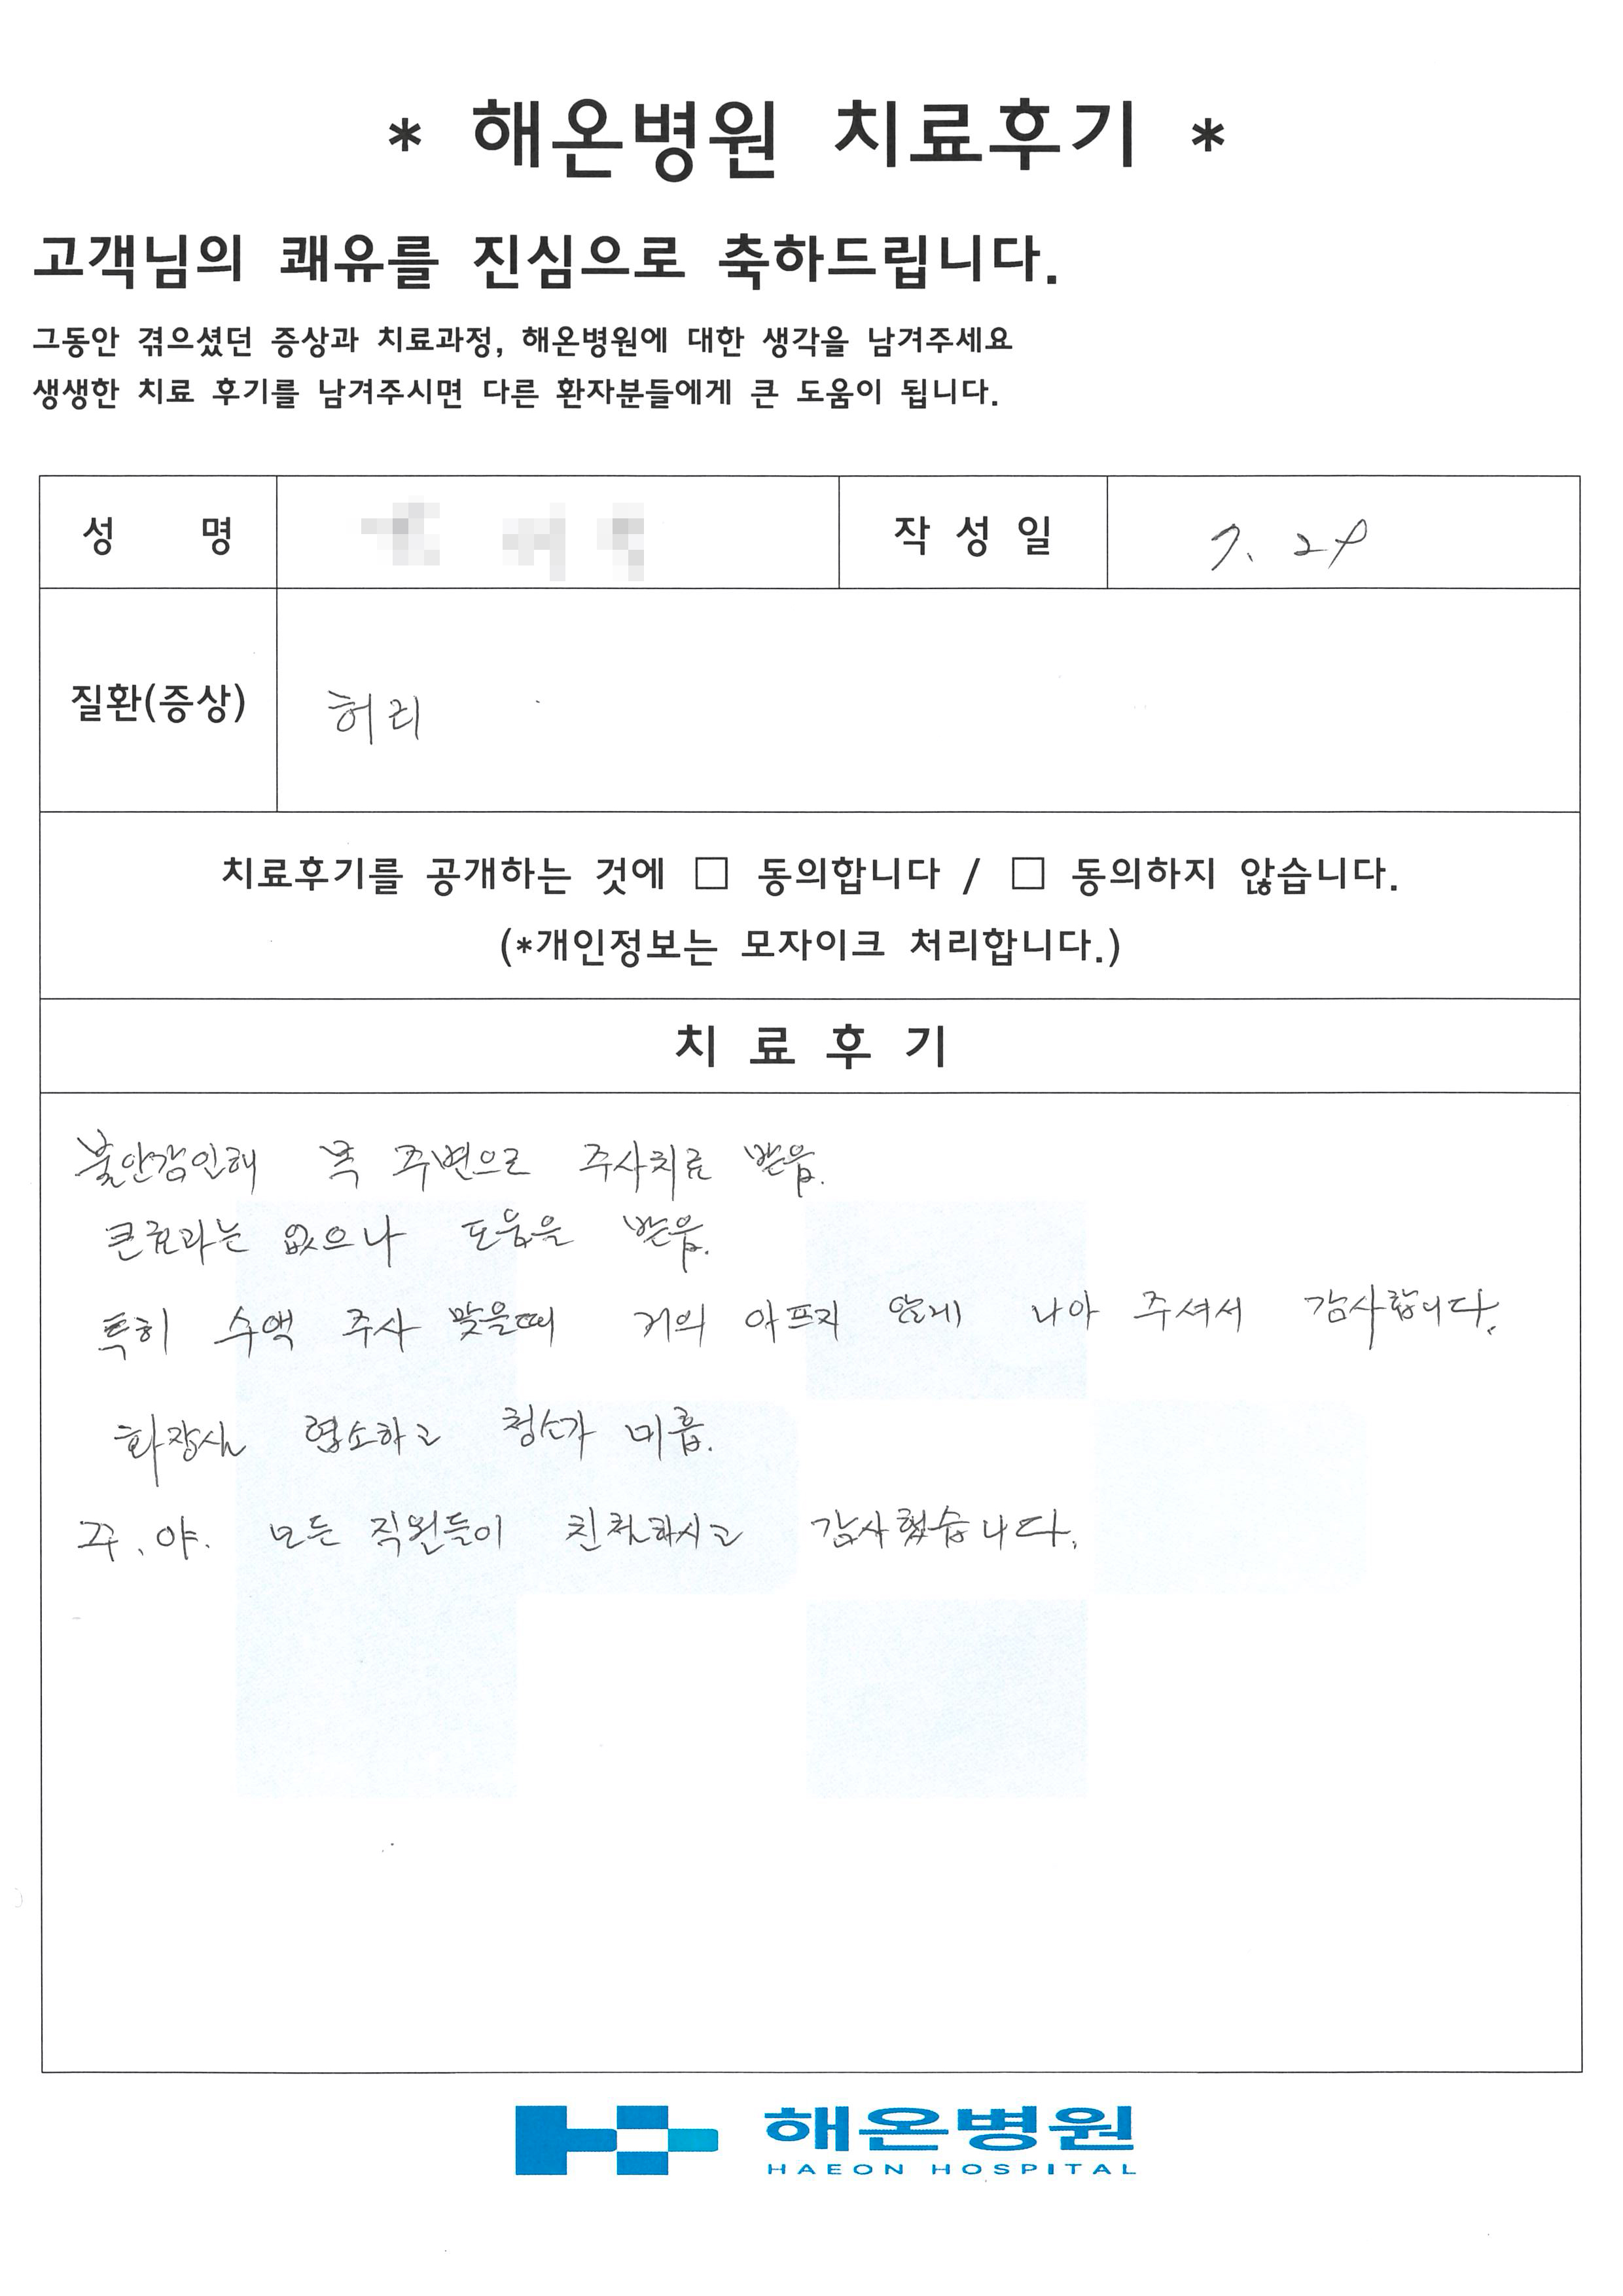 * 해온병원 치료후기 *
고객님의 쾌유를 진심으로 축하드립니다.
그동안 겪으셨던 증상과 치료과정, 해온병원에 대한 생각을 남겨주세요
생생한 치료 후기를 남겨주시면 다른 환자분들에게 큰 도움이 됩니다.
성 명
작 성 일 7. 24
질환(증상) 허리
치료후기를 공개하는 것에 □ 동의합니다 / □ 동의하지 않습니다.
(*개인정보는 모자이크 처리합니다.)
치 료 후 기
불안감인해 목 주변으로 주사치료 받음.
큰효과는 없으나 도움을 받음.
특히 수액 주사 맞을때 거의 아프지 않게 나아 주셔서 감사합니다.
화장실 협소하고 청소가 미흡.
주.야. 모든 직원들이 친절하시고 감사했습니다.
해온병원
HAEON HOSPITAL